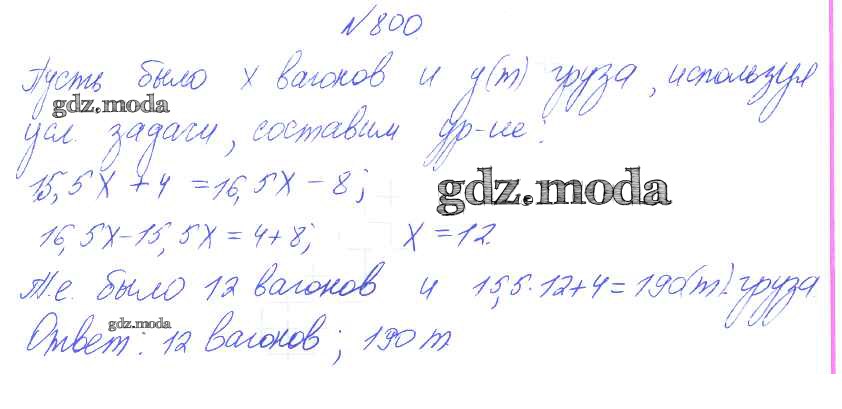 №800
Пусть было x вагонов и y(т) груза, используя
gdz.moda
усл. задачи, составим ур-ие:
15,5x + 4 = 16,5x - 8;
gdz.moda
16,5x - 15,5x = 4 + 8; x = 12.
Т.е. было 12 вагонов и 15,5 · 12 + 4 = 190(т) груза.
gdz.moda
Ответ: 12 вагонов; 190 т.